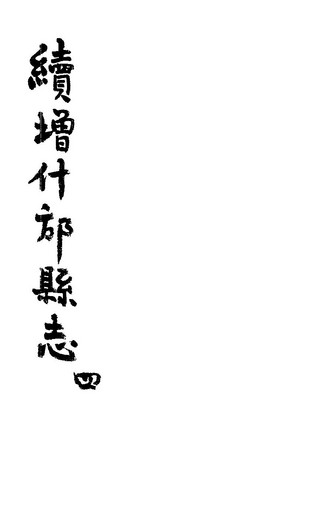 續增什邡縣志
四